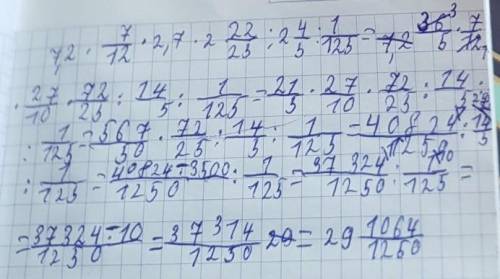 7,2 · 7/12 · 2,7 · 2 22/25 : 2 4/5 : 1/125 = 7,2 36/5 · 7/12
· 27/10 · 72/25 : 14/5 : 1/125 = 21/5 · 27/10 · 72/25 : 14
: 1/125 = 567/50 · 72/25 : 14/5 : 1/125 = 40824/1250 : 14/5
: 1/125 = 40824-3500/1250 : 1/125 = 37 324/1250 : 1/125 =
= 37324-10/1250 = 37314/1250 29 = 29 1064/1250